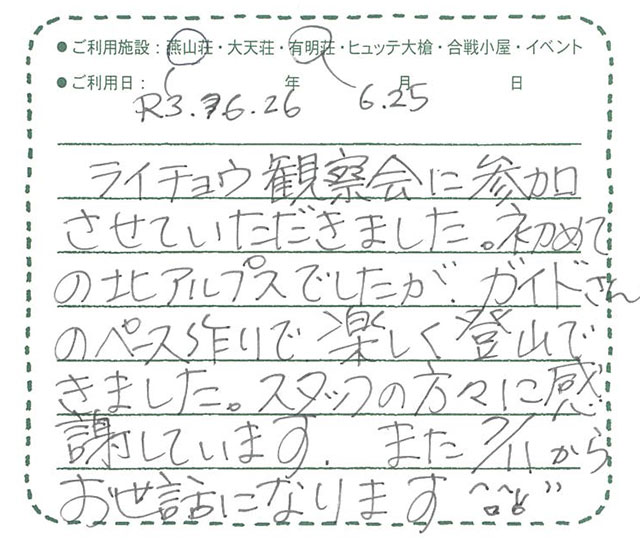 ●ご利用施設：燕山荘・大天荘・有明荘・ヒュッテ大槍・合戦小屋・イベント
●ご利用日： 年 月 日
R3. 6.26 6.25
ライチョウ観察会に参加
させていただきました。初めて
の北アルプスでしたが、ガイドさん
のペース作りで楽しく登山で
きました。スタッフの方々に感
謝しています. また7/11から
お世話になります